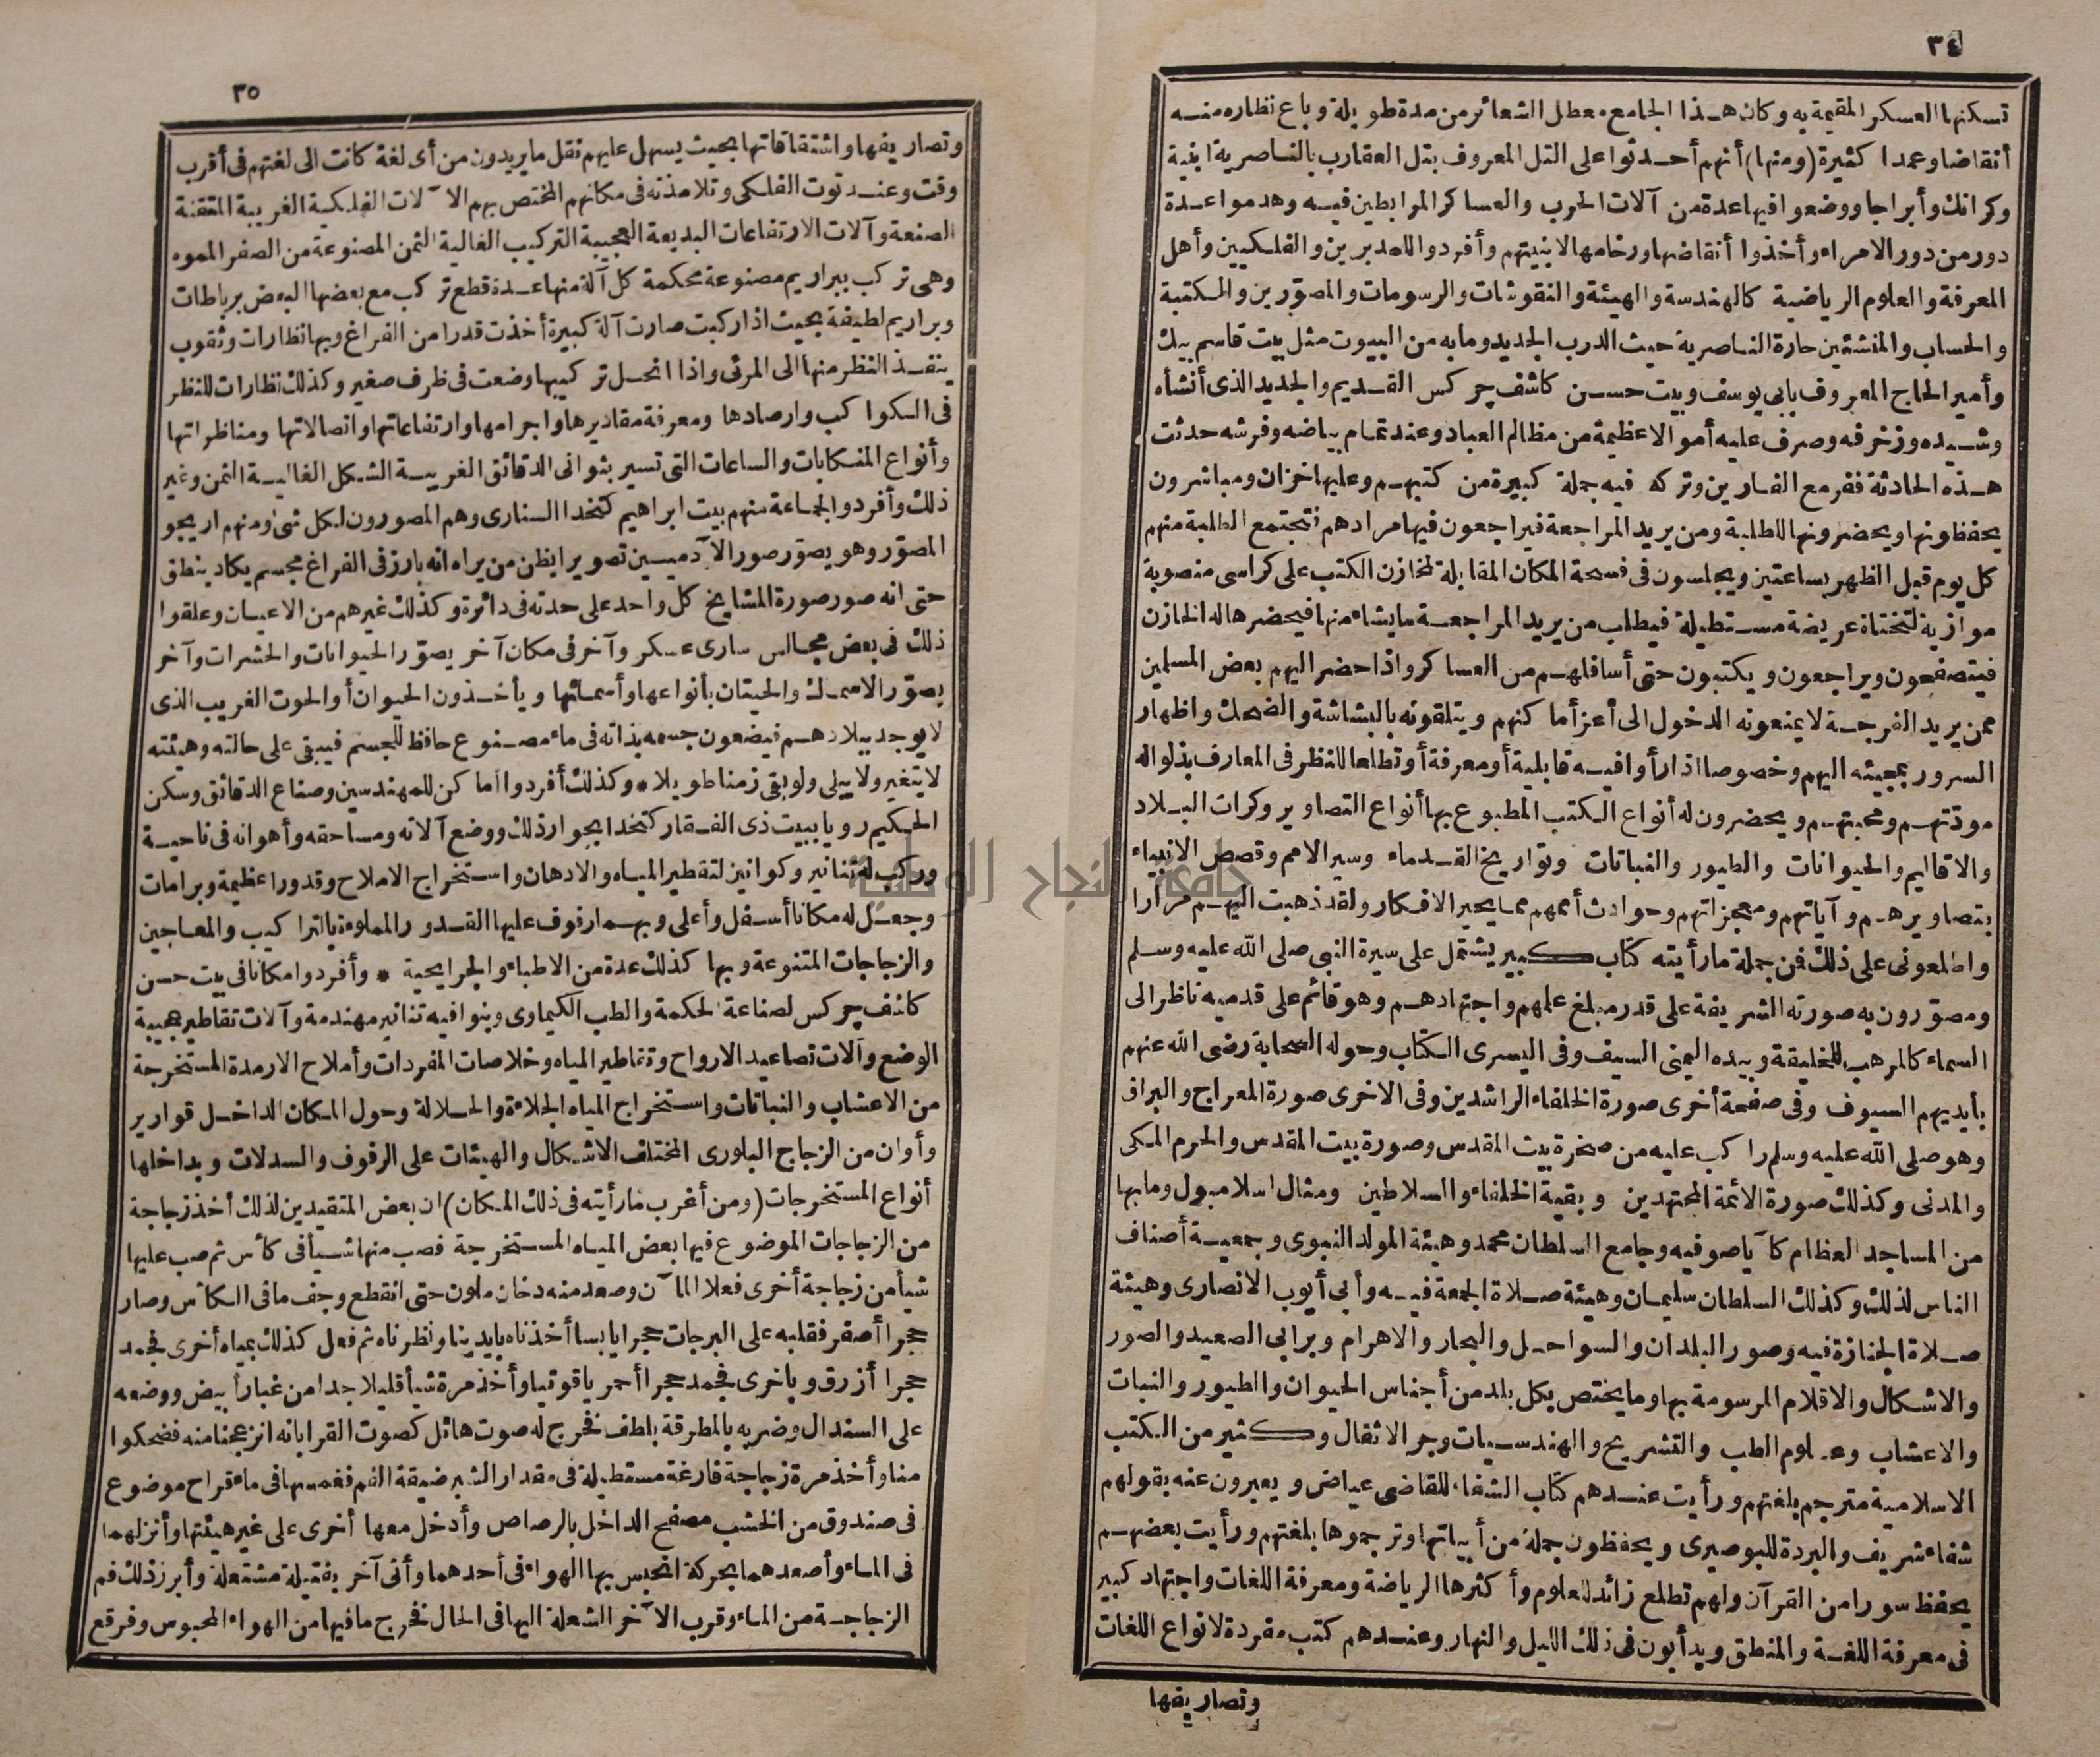 ٣٤
تسكنها العسكر المقيمة به وكان هذا الجامع معطل الشعائر من مدة طويلة وباع نظاره منه
أنقاضا وعمدا كثيرة (ومنها) أنهم أحدثوا على التل المعروف بتل العقارب بالناصرية ابنية
وكرانك وأبراجا ووضعوا فيها عدة من آلات الحرب والعساكر المرابطين فيه وهدموا عدة
دور من دور الامراء وأخذوا أنقاضها ورخامها لابنيتهم وأفردوا للمدبرين والفلكيين وأهل
المعرفة والعلوم الرياضية كالهندسة والهيئة والنقوشات والرسومات والمصوّرين والمكتبة
والحساب والمنشئين حارة الناصرية حيث الدرب الجديد وما به من البيوت مثل بيت قاسم بيك
وأمير الحاج المعروف بابى يوسف وبيت حسن كاشف چركس القديم والجديد الذى أنشأه
وشيده وزخرفه وصرف عليه أموالا عظيمة من مظالم العباد وعند تمام بياضه وفرشه حدثت
هذه الحادثة ففر مع الفارين وتركه فيه جملة كبيرة من كتبهم وعليها خزان ومباشرون
يحفظونها ويحضرونها للطلبة ومن يريد المراجعة فيراجعون فيها مرادهم فتجتمع الطلبة منهم
كل يوم قبل الظهر بساعتين ويجلسون فى فسحة المكان المقابلة لمخازن الكتب على كراسى منصوبة
موازية لتختاة عريضة مستطيلة فيطلب من يريد المراجعة ما يشاء منها فيحضرها له الخازن
فيتصفحون ويراجعون ويكتبون حتى أسافلهم من العساكر واذا حضر اليهم بعض المسلمين
ممن يريد الفرجة لا يمنعونه الدخول الى أعز أماكنهم ويتلقونه بالبشاشة والضحك واظهار
السرور بمجيئه اليهم وخصوصا اذا رأوا فيه قابلية أو معرفة أو تطلعا للنظر فى المعارف بذلوا له
مودّتهم ومحبتهم ويحضرون له أنواع الكتب المطبوع بها أنواع التصاوير وكرات البلاد
والاقاليم والحيوانات والطيور والنباتات وتواريخ القدماء وسير الامم وقصص الانبياء
بتصاويرهم وآياتهم ومعجزاتهم وحوادث أممهم مما يحير الافكار ولقد ذهبت اليهم مرارا
واطلعونى على ذلك فمن جملة ما رأيته كتاب كبير يشتمل على سيرة النبى صلى الله عليه وسلم
ومصوّرون به صورته الشريفة على قدر مبلغ علمهم واجتهادهم وهو قائم على قدميه ناظر الى
السماء كالمرهب للخليقة وبيده اليمنى السيف وفى اليسرى الكتاب وحوله الصحابة رضى الله عنهم
بأيديهم السيوف وفى صفحة أخرى صورة الخلفاء الراشدين وفى الاخرى صورة المعراج والبراق
وهو صلى الله عليه وسلم راكب عليه من صخرة بيت المقدس وصورة بيت المقدس والحرم المكى
والمدنى وكذلك صورة الائمة المجتهدين وبقية الخلفاء والسلاطين ومثال اسلامبول وما بها
من المساجد العظام كآيا صوفيه وجامع السلطان محمد وهيئة المولد النبوى وجمعية أصناف
الناس لذلك وكذلك السلطان سليمان وهيئة صلاة الجمعة فيه وأبى أيوب الانصارى وهيئة
صلاة الجنازة فيه وصور البلدان والسواحل والبحار والاهرام وبرابى الصعيد والصور
والاشكال والاقلام المرسومة بها وما يختص بكل بلد من أجناس الحيوان والطيور والنبات
والاعشاب وعلوم الطب والتشريح والهندسيات وجر الاثقال وكثير من الكتب
الاسلامية مترجم بلغتهم ورأيت عندهم كتاب الشفاء للقاضى عياض ويعبرون عنه بقولهم
شفاء شريف والبردة للبوصيرى ويحفظون جملة من أبياتها وترجموها بلغتهم ورأيت بعضهم
يحفظ سورا من القرآن ولهم تطلع زائد للعلوم وأكثرها الرياضة ومعرفة اللغات واجتهاد كبير
فى معرفة اللغة والمنطق ويدأبون فى ذلك الليل والنهار وعندهم كتب مفردة لانواع اللغات
وتصاريفها
٣٥
وتصاريفها واشتقاقاتها بحيث يسهل عليهم نقل ما يريدون من أى لغة كانت الى لغتهم فى أقرب
وقت وعند توت الفلكى وتلامذته فى مكانهم المختص بهم الآلات الفلكية الغريبة المتقنة
الصنعة وآلات الارتفاعات البديعة العجيبة التركيب الغالية الثمن المصنوعة من الصفر المموه
وهى تركب ببراريم مصنوعة محكمة كل آلة منها عدة قطع تركب مع بعضها البعض برباطات
وبراريم لطيفة بحيث اذا ركبت صارت آلة كبيرة أخذت قدرا من الفراغ وبها نظارات وثقوب
ينفذ النظر منها الى المرئى واذا انحل تركيبها وضعت فى ظرف صغير وكذلك نظارات للنظر
فى الكواكب وارصادها ومعرفة مقاديرها واجرامها وارتفاعاتها واتصالاتها ومناظراتها
وأنواع المنكابات والساعات التى تسير بثوانى الدقائق الغريبة الشكل الغالية الثمن وغير
ذلك وأفردوا لجماعة منهم بيت ابراهيم كتخدا السنارى وهم المصورون لكل شئ ومنهم اريجو
المصوّر وهو يصوّر صور الآدميين تصويرا يظن من يراه انه بارز فى الفراغ مجسم يكاد ينطق
حتى انه صور صورة المشايخ كل واحد على حدته فى دائرة وكذلك غيرهم من الاعيان وعلقوا
ذلك فى بعض مجالس سارى عسكر وآخر فى مكان آخر يصوّر الحيوانات والحشرات وآخر
يصوّر الاسماك والحيتان بأنواعها وأسمائها ويأخذون الحيوان أو الحوت الغريب الذى
لا يوجد ببلادهم فيضعون جسمه بذاته فى ماء مصنوع حافظ للجسم فيبقى على حالته وهيئته
لا يتغير ولا يبلى ولو بقى زمنا طويلا * وكذلك أفردوا أماكن للمهندسين وصناع الدقائق وسكن
الحكيم رويا ببيت ذى الفقار كتخدا بجوار ذلك ووضع آلاته ومساحقه وأهوانه فى ناحية
وركب له تنانير وكوانين لتقطير المياه والادهان واستخراج الاملاح وقدورا عظيمة وبرامات
وجعل له مكانا أسفل وأعلى وبهما رفوف عليها القدور المملوءة بالتراكيب والمعاجين
والزجاجات المتنوعة وبها كذلك عدة من الاطباء والجرايحية * وأفردوا مكانا فى بيت حسن
كاشف چركس لصناعة الحكمة والطب الكيماوى وبنوا فيه تنانير مهندمة وآلات تقاطير عجيبة
الوضع وآلات تصاعيد الارواح وتقاطير المياه وخلاصات المفردات وأملاح الارمدة المستخرجة
من الاعشاب والنباتات واستخراج المياه الجلاءة والحلالة وحول المكان الداخل قوارير
وأوان من الزجاج البلورى المختلف الاشكال والهيئات على الرفوف والسدلات وبداخلها
أنواع المستخرجات (ومن أغرب ما رأيته فى ذلك المكان) ان بعض المتقيدين لذلك أخذ زجاجة
من الزجاجات الموضوع فيها بعض المياه المستخرجة فصب منها شيأ فى كأس ثم صب عليها
شيأ من زجاجة أخرى فعلا الماآن وصعد منه دخان ملون حتى انقطع وجف ما فى الكأس وصار
حجرا أصفر فقلبه على البرجات حجرا يابسا أخذناه بايدينا ونظرناه ثم فعل كذلك بمياه أخرى فجمد
حجرا أزرق وباخرى فجمد حجرا أحمر ياقوتيا وأخذ مرة شيأ قليلا جدا من غبار أبيض ووضعه
على السندال وضربه بالمطرقة بلطف فخرج له صوت هائل كصوت القرابانه انزعجنا منه فضحكوا
منا وأخذ مرة زجاجة فارغة مستطيلة فى مقدار الشبر ضيقة الفم فغمسها فى ماء قراح موضوع
فى صندوق من الخشب مصفح الداخل بالرصاص وأدخل معها أخرى على غير هيئتها وأنزلهما
فى الماء وأصعدهما بحركة انحبس بها الهواء فى أحدهما وأتى آخر بفتيلة مشتعلة وأبرز ذلك فم
الزجاجة من الماء وقرب الآخر الشعلة اليها فى الحال فخرج ما فيها من الهواء المحبوس وفرقع
جامعة النجاح الوطنية